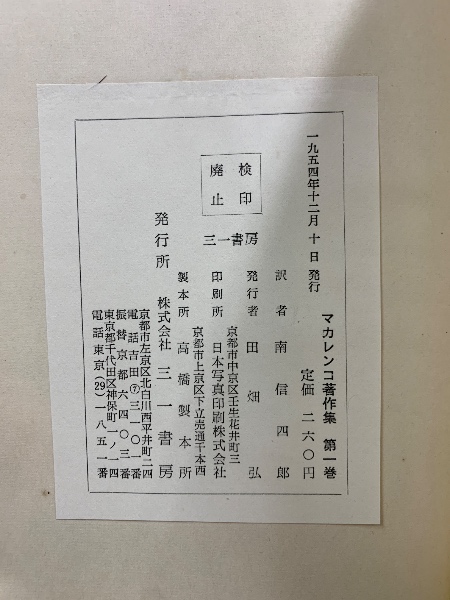 一九五四年十二月 十 日 発行
マカレンコ著作集 第一巻
定価 二六〇円
訳者 南信四郎
発行者 田畑 弘
京都市中京区壬生花井町三
印刷所 日本写真印刷株式会社
京都市上京区下立売通千本西
製本所 高橋製本所
検印
廃止
三一書房
発行所 株式会社 三一書房
京都市左京区北白川西平井町二四
電話吉田⑦三一〇一番
振替京都六四〇三番
東京都千代田区神保町一ノ四
電話東京(29)一八五一番